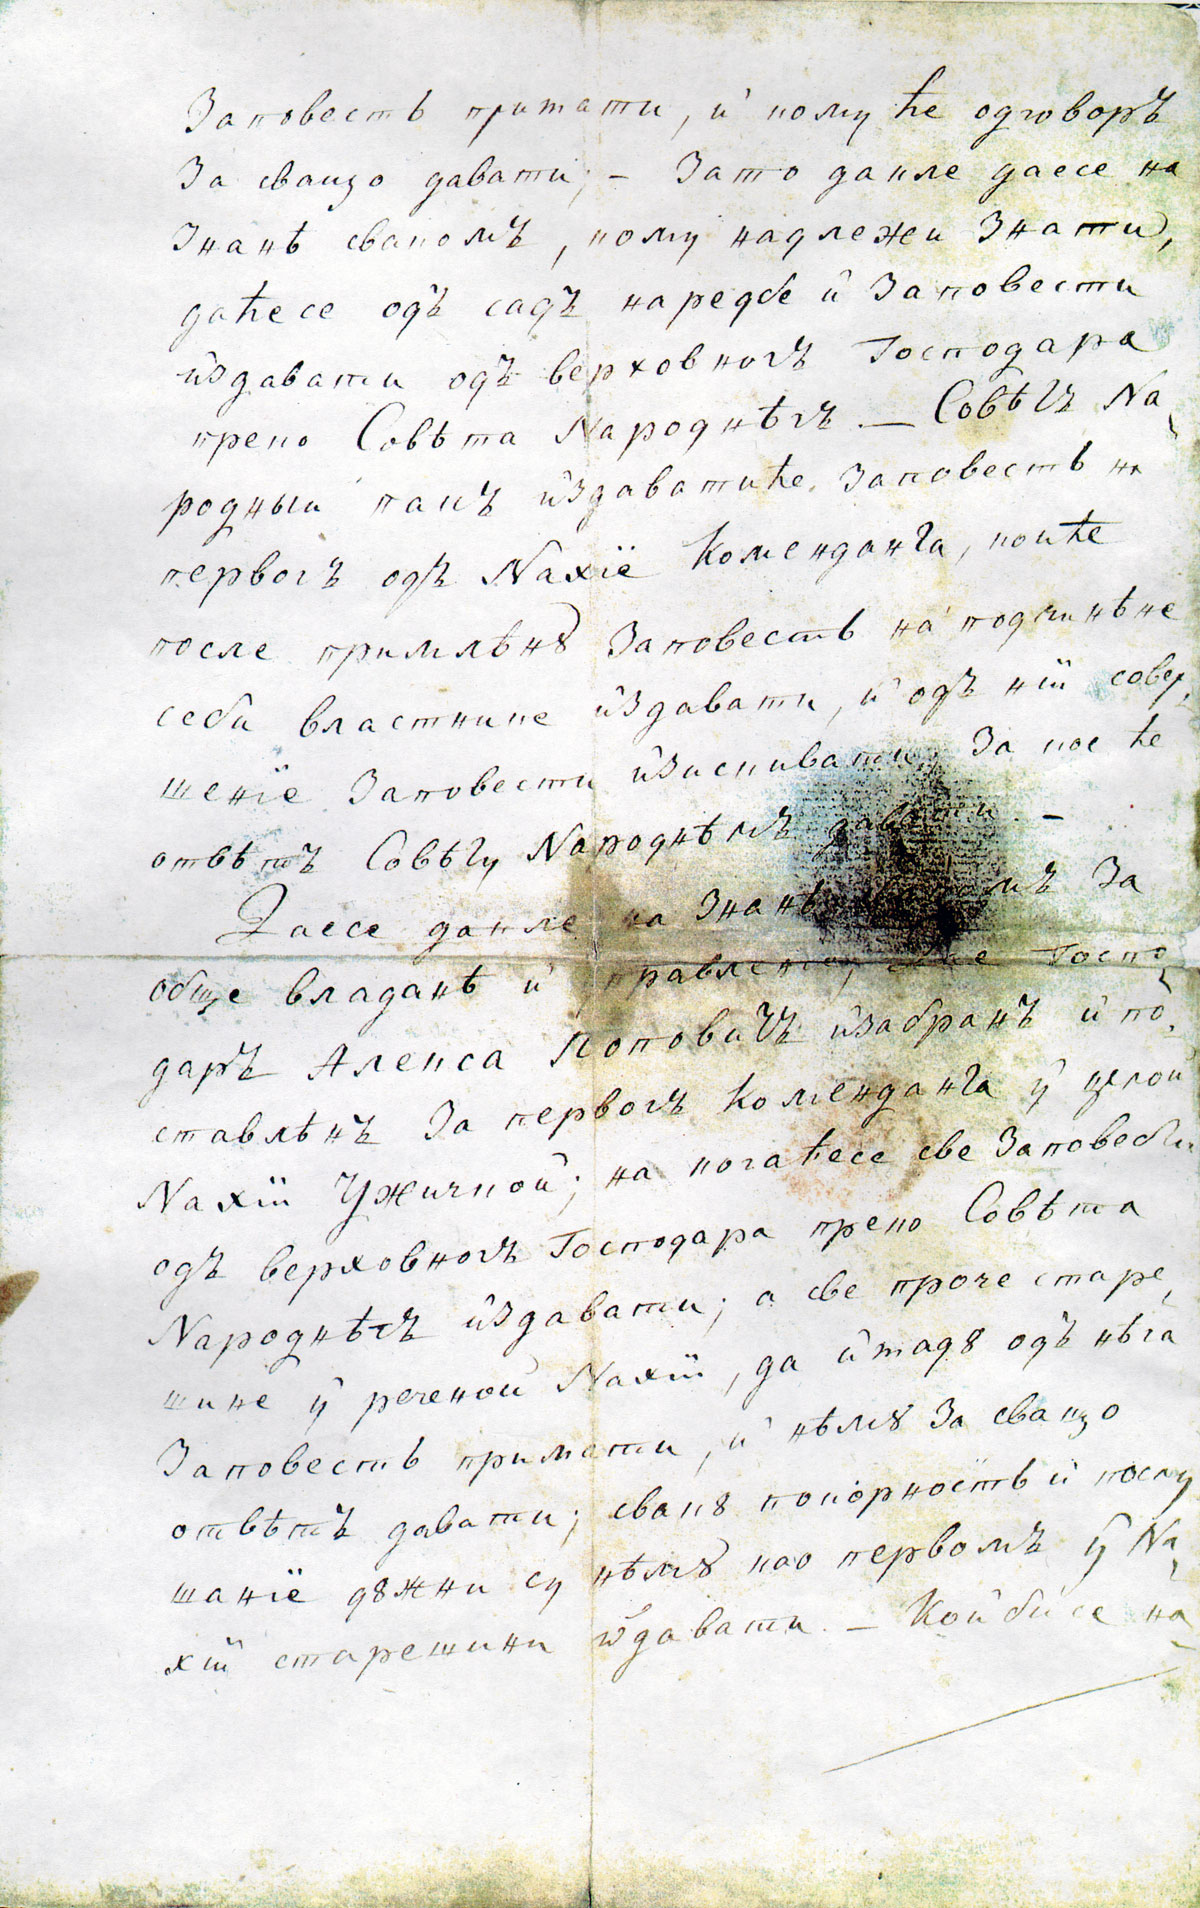 Заповесть примати, и кому ће одговоръ
За свашо давати; – Зато дакле даесе на
Знанѣ свакомъ, кому надлежи Знати,
даћесе одъ садъ наредбе и Заповести
издавати одъ верховногъ Господара
преко Совѣта Народнѣгъ. – Совѣтъ На,
родный пакъ издаватиће Заповесть на
первогъ одъ Нахїе Коменданта, коиће
после примлѣнꙋ Заповесть на подчинѣне
себи властнике издавати, и одъ нїй совер,
шенїе Заповести изискивати, За кое ће
отвѣтъ Совѣту Народнѣмъ давати. –
Даесе дакле на Знанѣ свакомъ За
обще владанѣ и управленїе, Госпо,
даръ Алекса Поповичъ изабранъ и по,
ставлѣнъ За первогъ Коменданта у целой
Нахїй Ужичкой; на когаћесе све Заповести
одъ верховногъ Господара преко Совѣта
Народнѣгъ издавати; а све проче старе,
шине у реченой Нахїй, да итадꙋ одъ нѣга
Заповесть примати, и нѣмꙋ За свашо
отвѣтъ давати; свакꙋ покорность и послу
шанїе дꙋжни су нѣмꙋ као первомъ у На,
хїй старешини издавати. – Кой бисе на